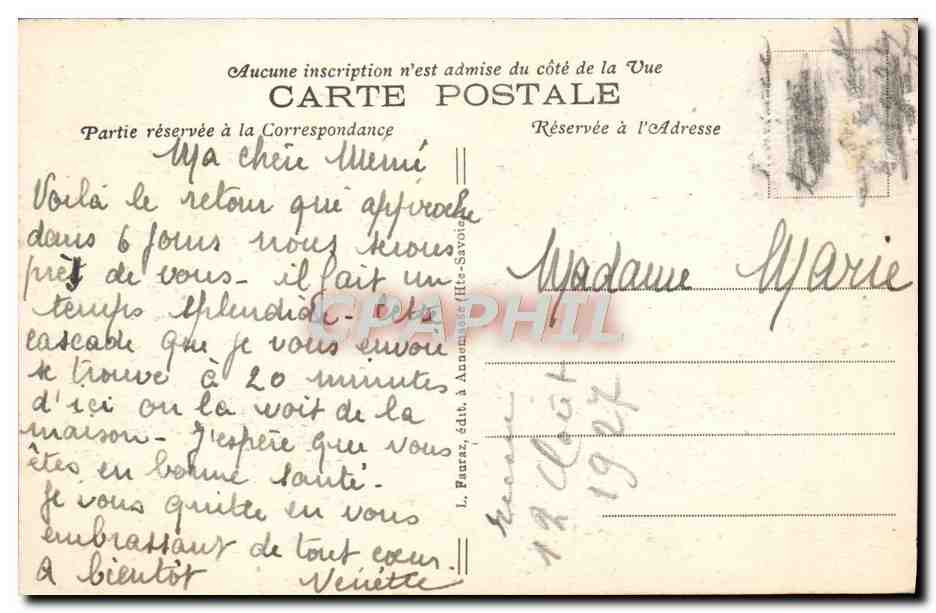 Aucune inscription n'est admise du côté de la Vue
CARTE POSTALE
Partie réservée à la Correspondance
Réservée à l'Adresse
Ma chère Mémé
Voilà le retour qui approche
dans 6 jours nous serons
près de vous - il fait un
temps splendide - Cette
cascade que je vous envoie
se trouve à 20 minutes
d'ici on la voit de la
maison - J'espère que vous
êtes en bonne santé -
Je vous quitte en vous
embrassant de tout coeur -
A bientôt
L. Fauraz, édit. à Annemasse (Hte-Savoie)
Madame Marie
12 Août
1927
CPAPHIL